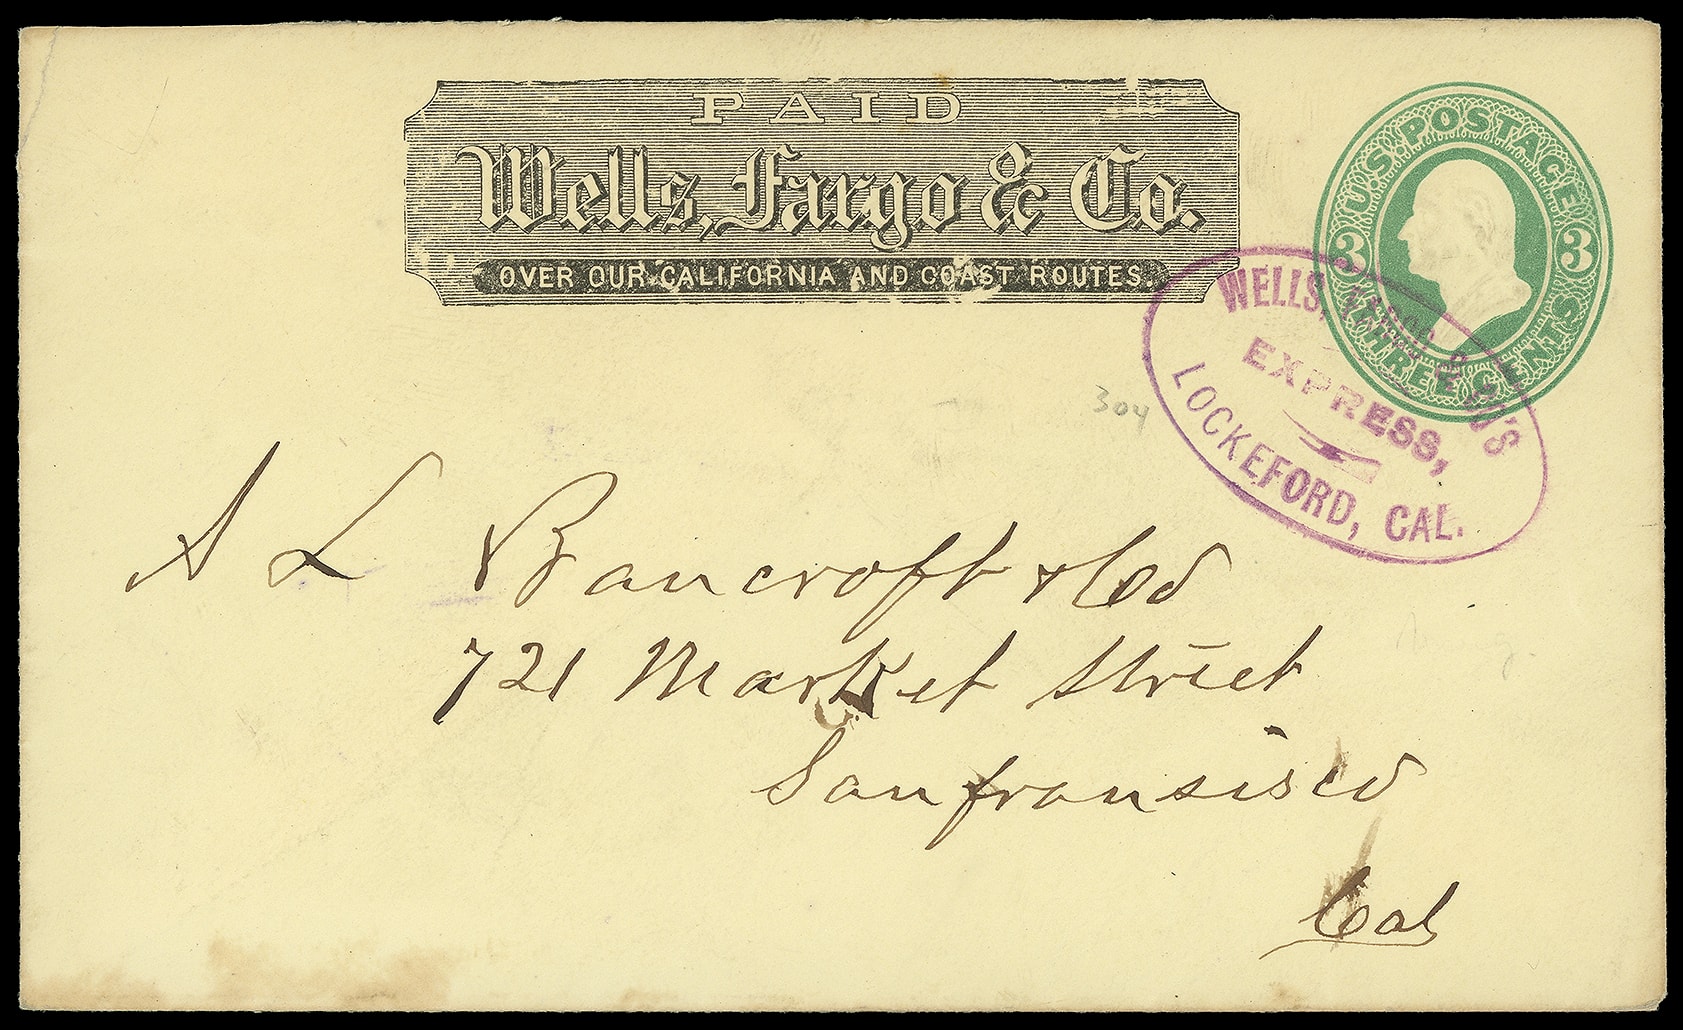 PAID
Wells, Fargo & Co.
OVER OUR CALIFORNIA AND COAST ROUTES.
U.S. POSTAGE
3 3
THREE CENTS
WELLS, FARGO & CO'S
EXPRESS,
LOCKEFORD, CAL.
304
A L Bancroft & Co
721 Market Street
San fransisco
Cal